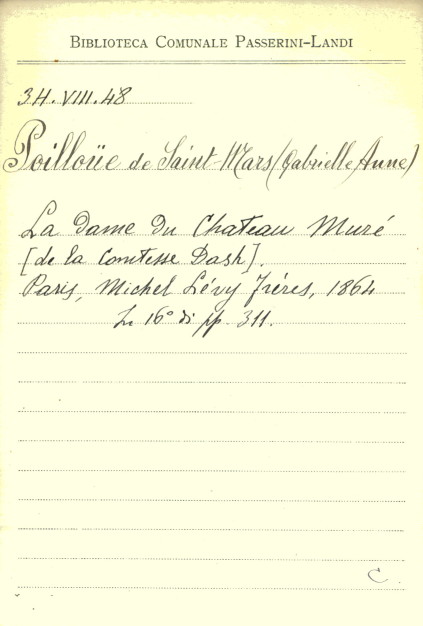 BIBLIOTECA COMUNALE PASSERINI-LANDI
34.VIII.48
Poilloüe de Saint-Mars (Gabrielle Anne)
La Dame du Chateau Muré
[de la Comtesse Dash].
Paris, Michel Lévy Fréres, 1864
In 16° di pp. 311.
C.